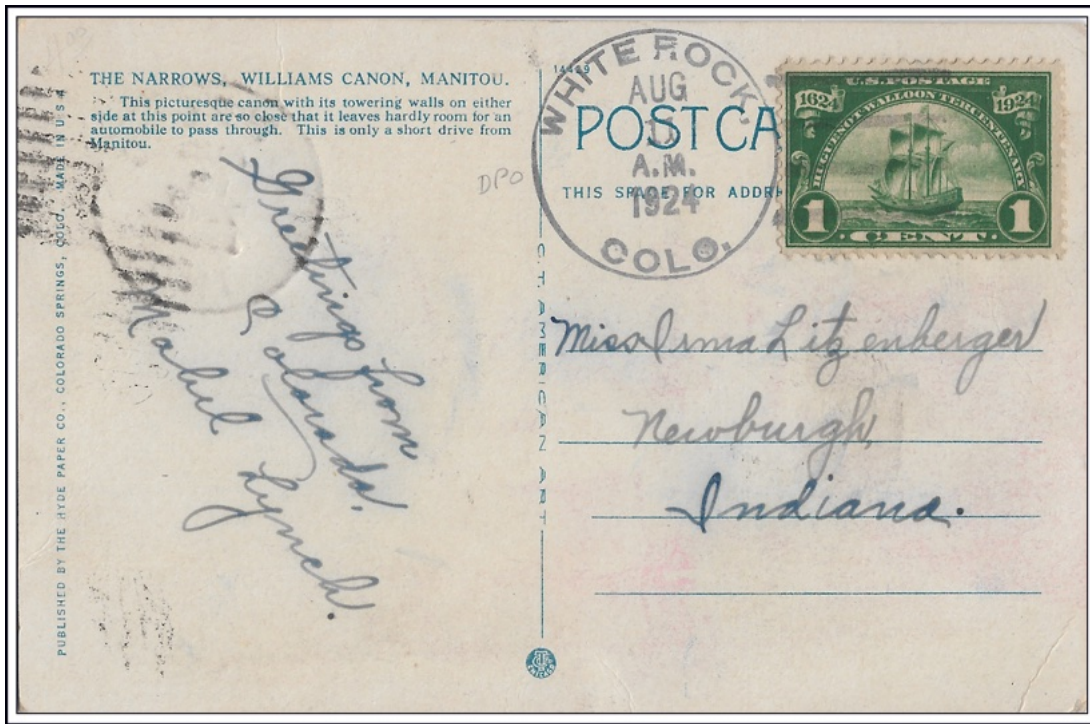 THE NARROWS, WILLIAMS CANON, MANITOU.
This picturesque canon with its towering walls on either
side at this point are so close that it leaves hardly room for an
automobile to pass through. This is only a short drive from
Manitou.
PUBLISHED BY THE HYDE PAPER CO., COLORADO SPRINGS, COLO. MADE IN U.S.A.
Greetings from
Colorado.
Mabel Lynch.
DPO
C. T. AMERICAN ART
CHICAGO
POST CA
THIS SPACE FOR ADDRE
WHITE ROCK,
AUG
A.M.
1924
COLO.
U.S. POSTAGE
1624 1924
HUGUENOT-WALLOON TERCENTENARY
1 1
CENT
Miss Irma Litzenberger
Newburgh,
Indiana.